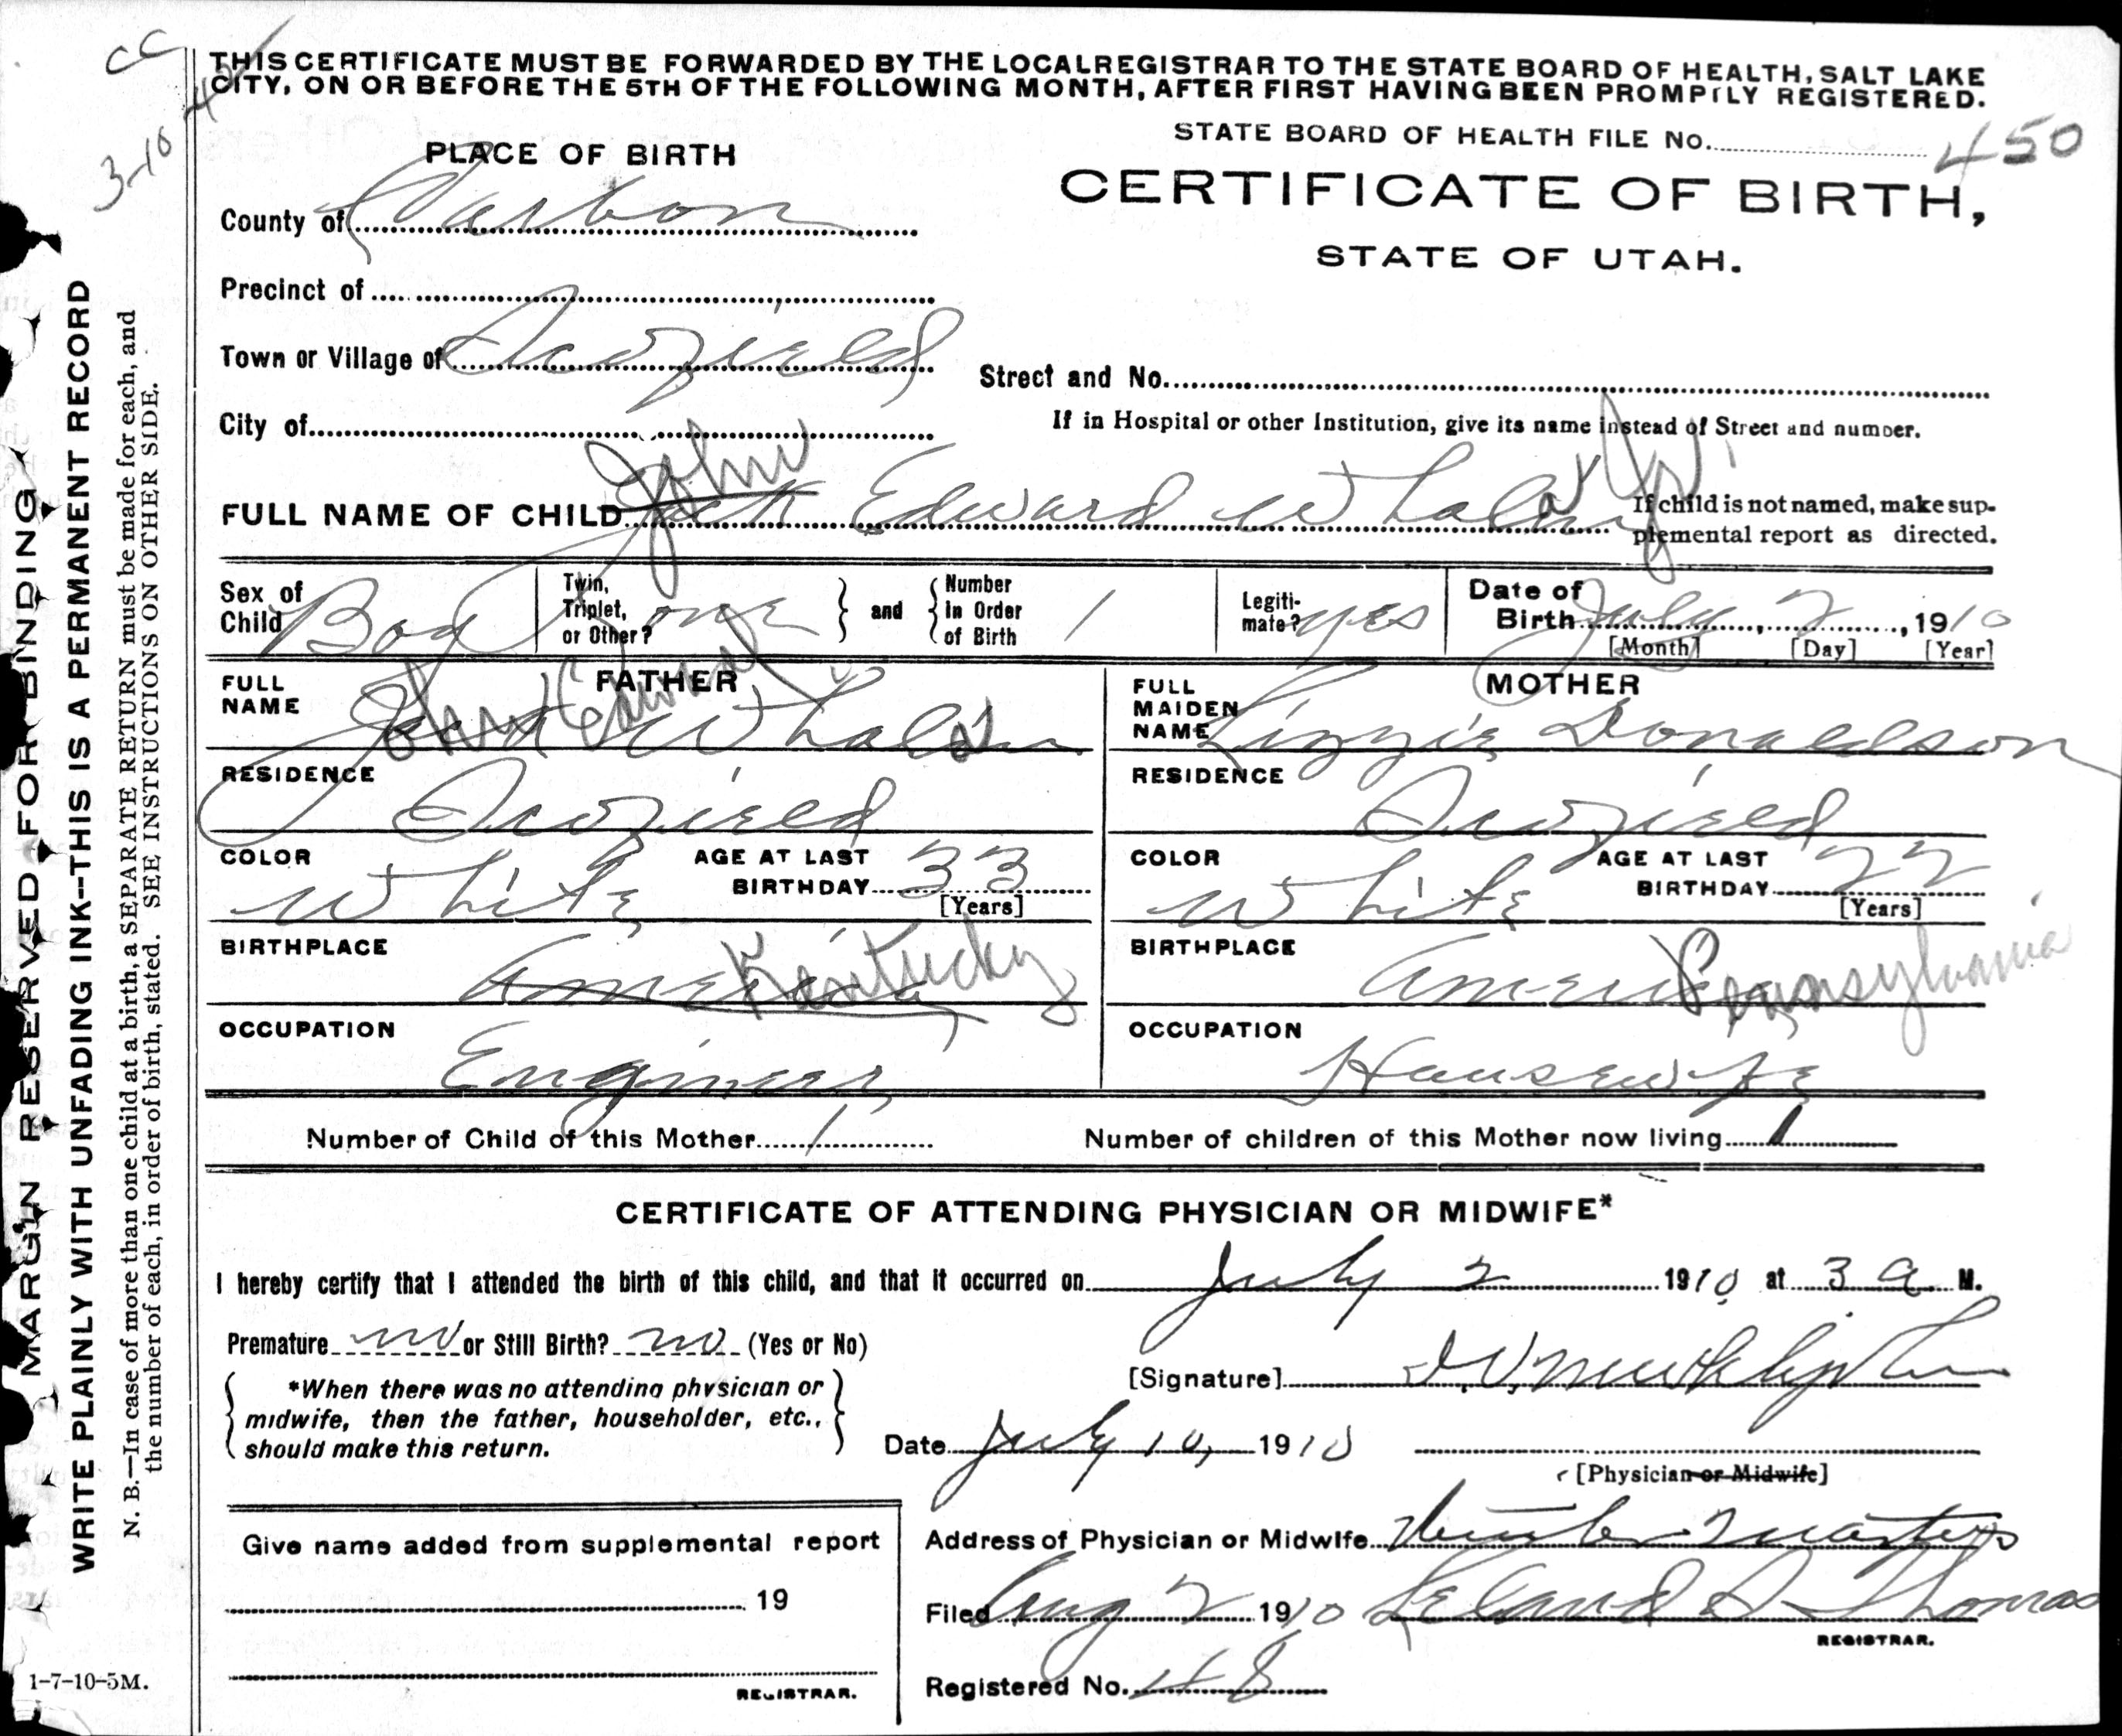 CC
3-10
THIS CERTIFICATE MUST BE FORWARDED BY THE LOCAL REGISTRAR TO THE STATE BOARD OF HEALTH, SALT LAKE
CITY, ON OR BEFORE THE 5TH OF THE FOLLOWING MONTH, AFTER FIRST HAVING BEEN PROMPTLY REGISTERED.
STATE BOARD OF HEALTH FILE No. 450
PLACE OF BIRTH
CERTIFICATE OF BIRTH,
STATE OF UTAH.
County of Carbon
Precinct of
Town or Village of Scofield
Street and No.
City of
If in Hospital or other Institution, give its name instead of Street and number.
FULL NAME OF CHILD John Jack Edward Whalay Jr.
If child is not named, make sup-
plemental report as directed.
Sex of Child Boy
Twin, Triplet, or Other? one and Number in Order of Birth 1
Legiti-mate? yes
Date of Birth July 2, 1910
[Month] [Day] [Year]
FATHER
FULL NAME John Edward Whalay
RESIDENCE Scofield
COLOR White AGE AT LAST BIRTHDAY 33 [Years]
BIRTHPLACE America Kentucky
OCCUPATION Engineer
MOTHER
FULL MAIDEN NAME Lizzie Donaldson
RESIDENCE Scofield
COLOR White AGE AT LAST BIRTHDAY 22 [Years]
BIRTHPLACE America Pennsylvania
OCCUPATION Housewife
Number of Child of this Mother 1 Number of children of this Mother now living 1
CERTIFICATE OF ATTENDING PHYSICIAN OR MIDWIFE*
I hereby certify that I attended the birth of this child, and that it occurred on July 2 1910 at 3 a M.
Premature no or Still Birth? no (Yes or No)
*When there was no attending physician or
midwife, then the father, householder, etc.,
should make this return.
[Signature]
Date July 10, 1910
[Physician or Midwife]
Give name added from supplemental report
19
REGISTRAR.
Address of Physician or Midwife Winter Quarters
Filed Aug 2 1910 Leland S Thomas
REGISTRAR.
Registered No. 48
MARGIN RESERVED FOR BINDING
WRITE PLAINLY WITH UNFADING INK--THIS IS A PERMANENT RECORD
N. B.—In case of more than one child at a birth, a SEPARATE RETURN must be made for each, and
the number of each, in order of birth, stated. SEE INSTRUCTIONS ON OTHER SIDE.
1-7-10-5M.